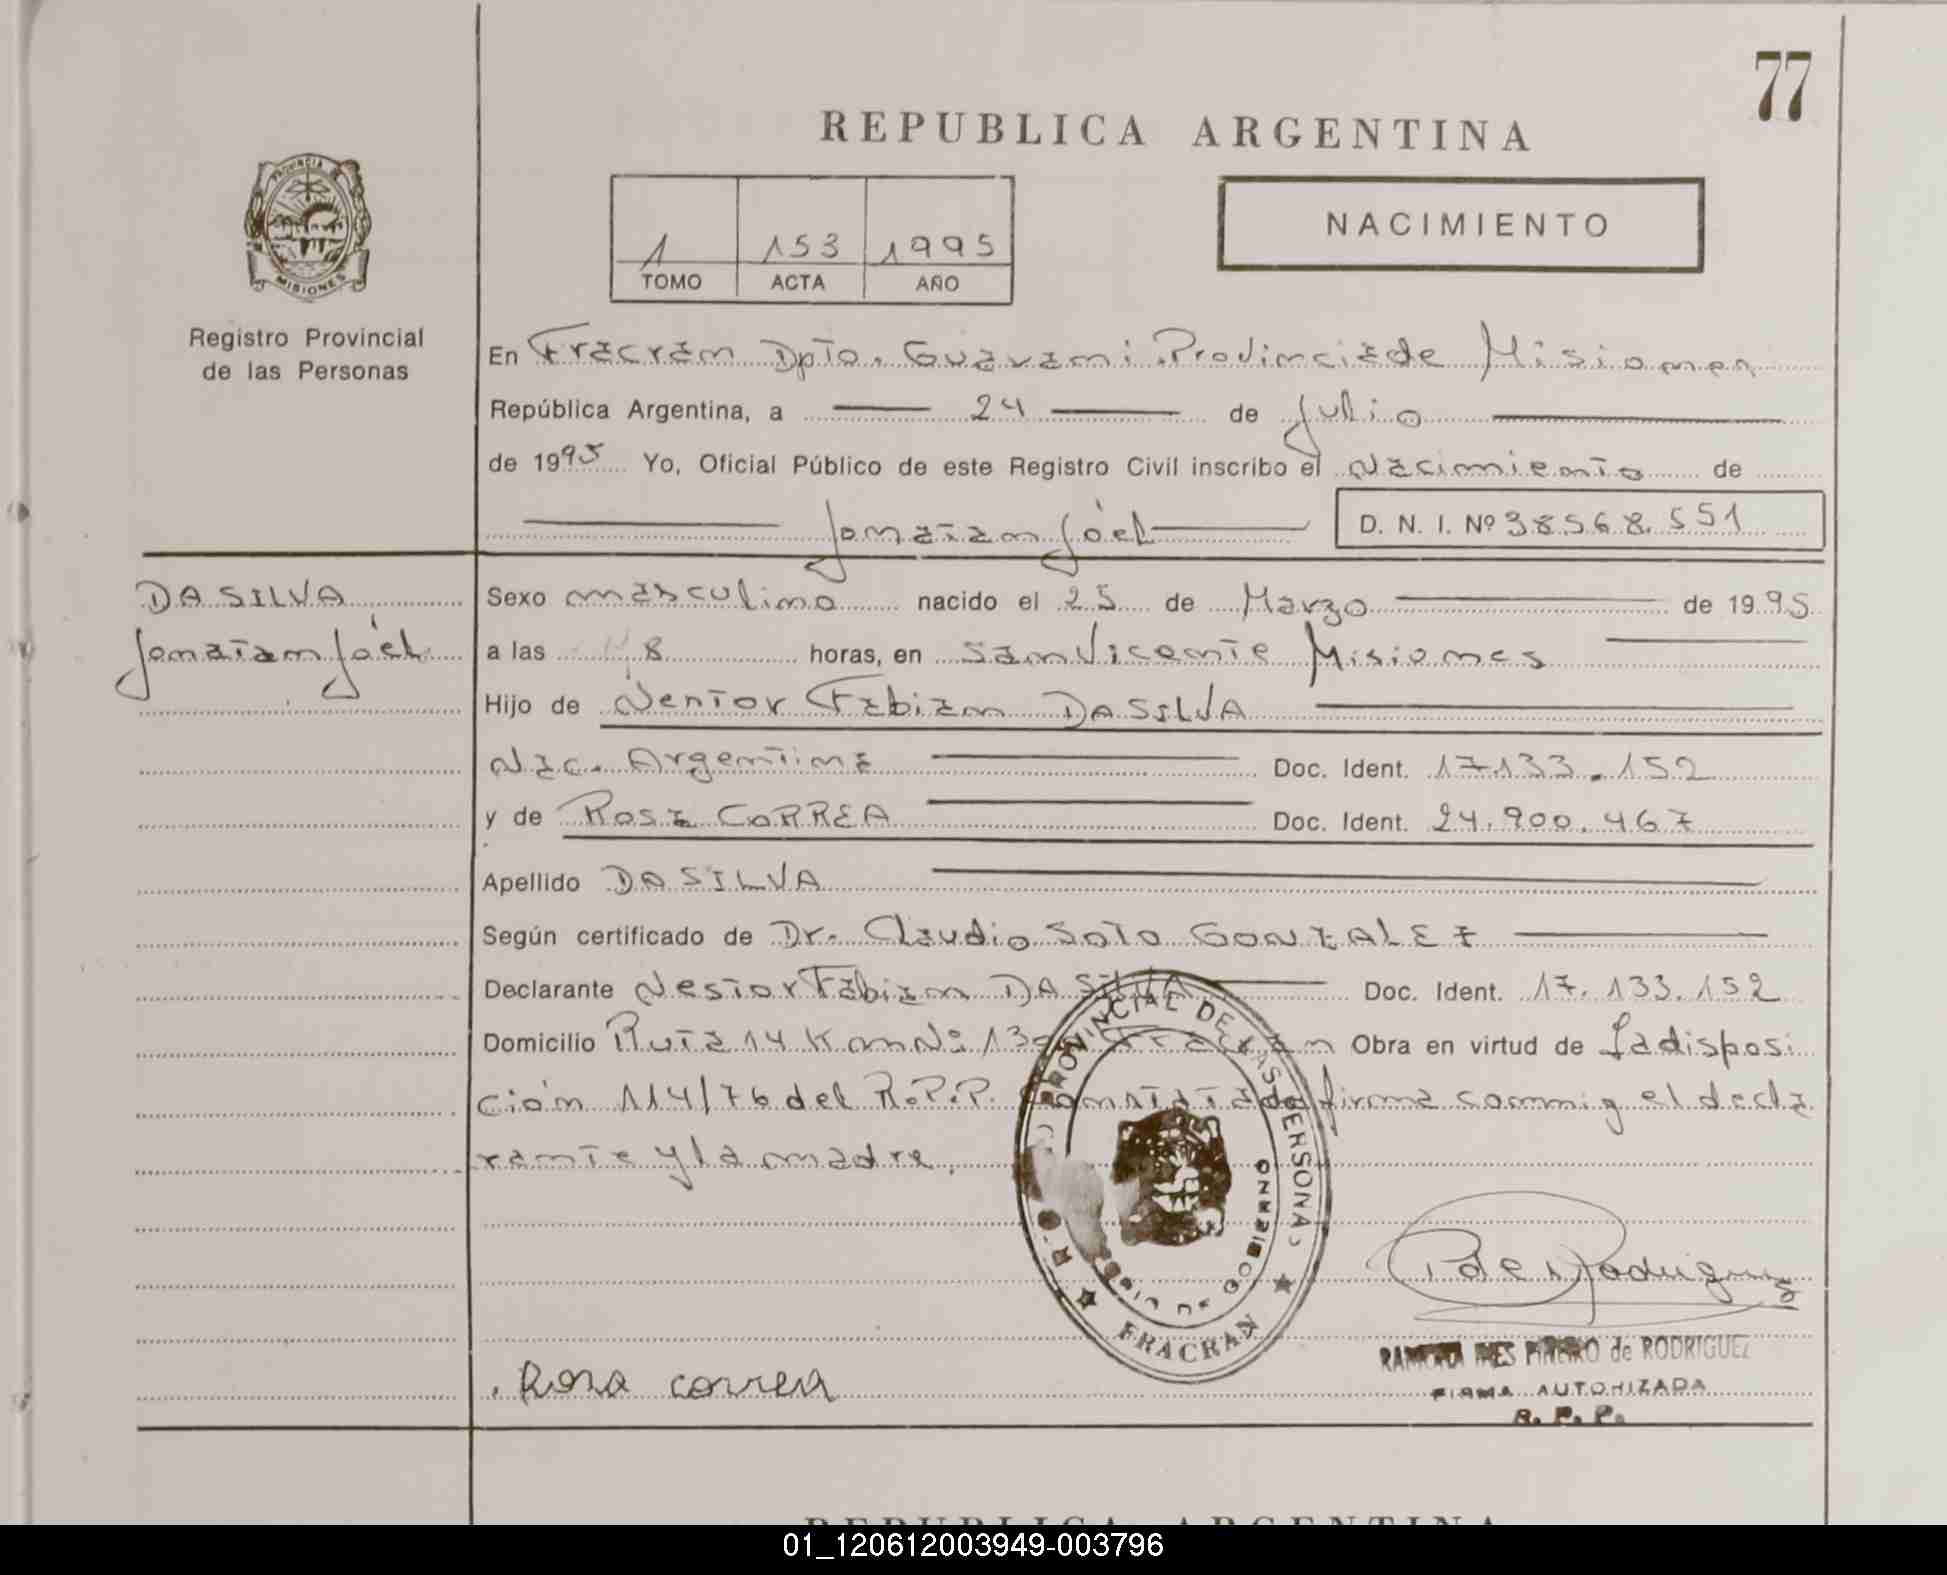 77
REPUBLICA ARGENTINA
PROVINCIA
MISIONES
Registro Provincial
de las Personas
1 153 1995
TOMO ACTA AÑO
NACIMIENTO
En Fracram Dpto. Guarami Provincia de Misiones
República Argentina, a 24 de Julio
de 1995 Yo, Oficial Público de este Registro Civil inscribo el Nacimiento de
Jonatam Jóel D. N. I. Nº 38568.551
DA SILVA
Jonatam Jóel
Sexo masculino nacido el 25 de Marzo de 1995
a las 8 horas, en San Vicente Misiones
Hijo de Nestor Fabian DA SILVA
Nac. Argentina Doc. Ident. 17133.152
y de Rosa CORREA Doc. Ident. 24.900.467
Apellido DA SILVA
Según certificado de Dr. Claudio SOTO GONZALEZ
Declarante Nestor Fabian DA SILVA Doc. Ident. 17.133.152
Domicilio Ruta 14 Km Nº Fracran Obra en virtud de La disposi
ción 114/76 del R.P.P. firma conmig el decla
rante y la madre.
PROVINCIAL DE LAS PERSONAS
DE GOBIERNO
FRACRAN
P de Rodriguez
RAMONA INES PIÑEIRO de RODRIGUEZ
FIRMA AUTORIZADA
R. P. P.
Rosa correa
REPUBLICA ARGENTINA
01_120612003949-003796